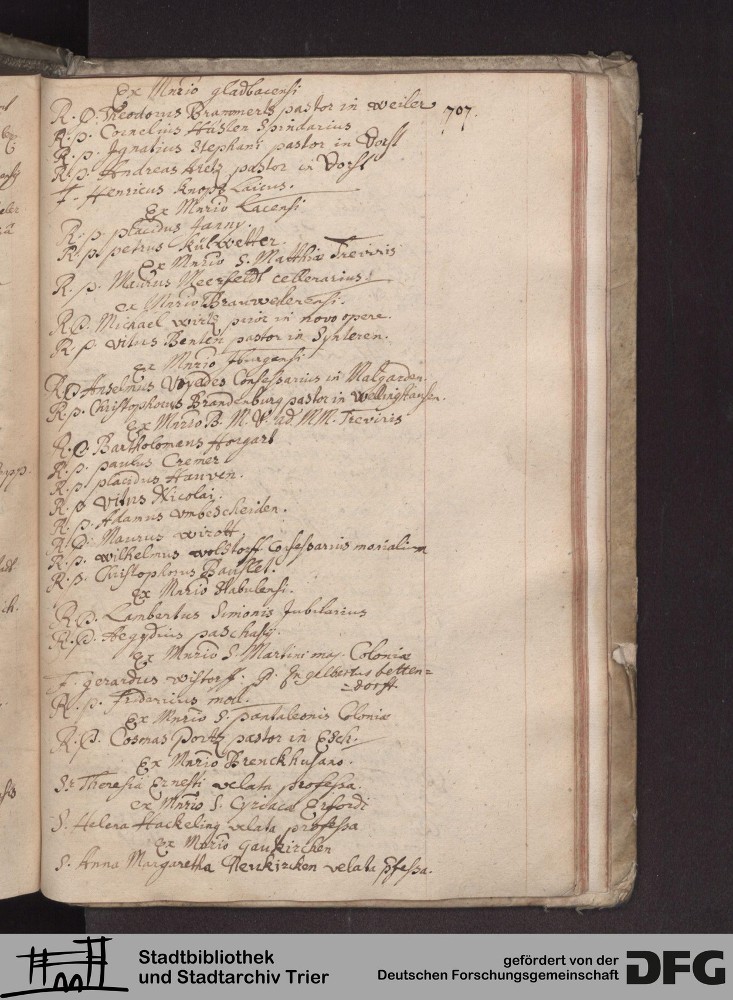 Ex Mnrio gladbacensi
R. D. Theodorus Brammertz pastor in weiler 707.
R. p. Cornelius Hüsler Spindarius
R. p. Ignatius Stephani pastor in Vorst
R. p. Andreas pastor in Vorst
F. Henricus Knops Laicus.
Ex Mnrio Lacensi
R. p. placidus Janny.
R. p. petrus Külwetter.
Ex Mnrio S. Matthiæ Treviris
R. p. Maurus Meerfeldt cellerarius
ex Mnrio Brauwelerensi.
R. D. Michael wirtz prior in novo opere.
R. p. Vitus Benten pastor in Synteren.
ex Mnrio Iburgensi
R. D. Anselmus Voyedes Confessarius in Malgarden.
R. p. Christophorus Brandenburg pastor in Wellinghausen.
Ex Mnrio B. M. V. ad MM. Treviris
R. D. Bartholomæus Horgart
R. p. paulus Cremer
R. p. placidus Hauven.
R. p. Vitus Nicolai.
R. p. Adamus vmbescheiden.
R. D. Maurus wirott
R. p. wilhelmus wolstorff Confessarius monialium
R. p. Christophorus Bauslet.
Ex Mnrio Stabulensi.
R. D. Lambertus Simonis Jubilarius
R. D. Aegydius paschasy.
Ex Mnrio S. Martini maj. Coloniæ
F. gerardus wistorff: p. Engelbertus betten=
=dorff.
R. p. Fridericus moll.
Ex Mnrio S. pantaleonis Coloniæ
R. D. Cosmas Portz pastor in Esch.
Ex Mnrio Brenckhusano.
Sr. Theresia Ernesti velata professa.
ex Mnrio S. Cyriaci Erfordi
S. Helena Hackeling velata professa
ex Mnrio Gaukirchen
S. Anna Margaretha Neukircken velata pfessa.
Stadtbibliothek
und Stadtarchiv Trier
gefördert von der
Deutschen Forschungsgemeinschaft
DFG